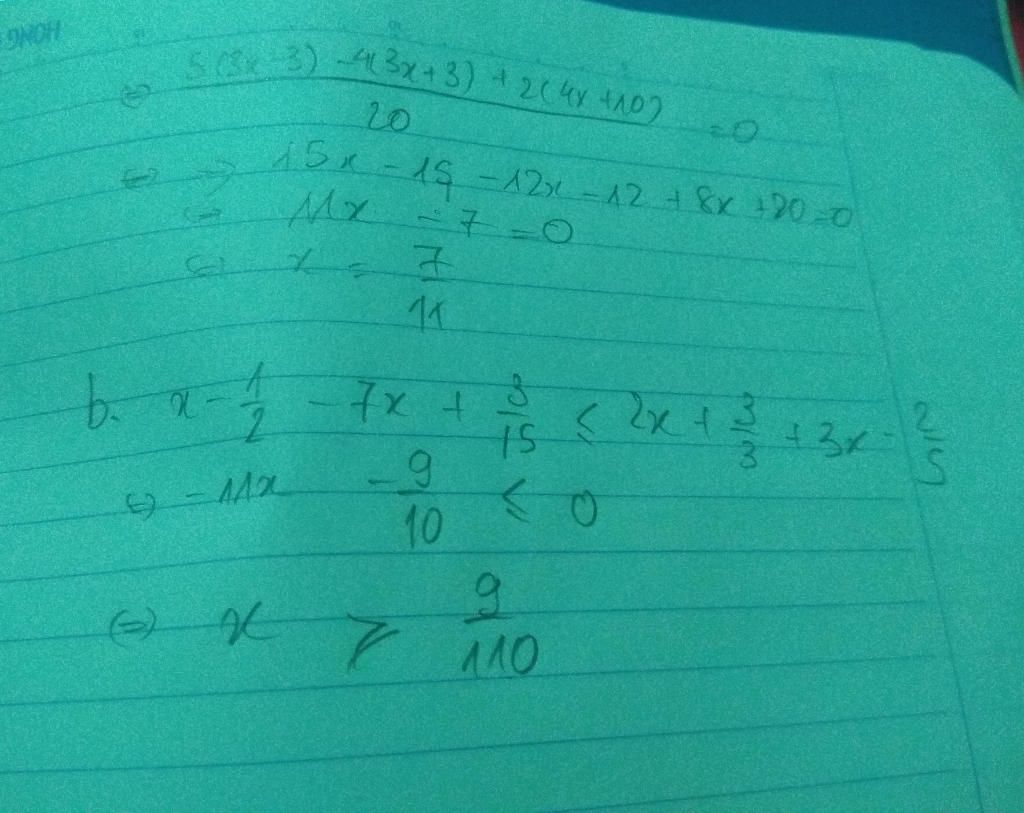 HONG
⇔ 5(3x-3) -4(3x+3) + 2(4x+10) / 20 = 0
⇔ ⇒ 15x - 15 - 12x - 12 + 8x + 20 = 0
⇔ 11x - 7 = 0
⇔ x = 7/11
b. x - 1/2 - 7x + 3/15 ≤ 2x + 3/3 + 3x - 2/5
⇔ -11x - 9/10 ≤ 0
⇔ x ≥ 9/110